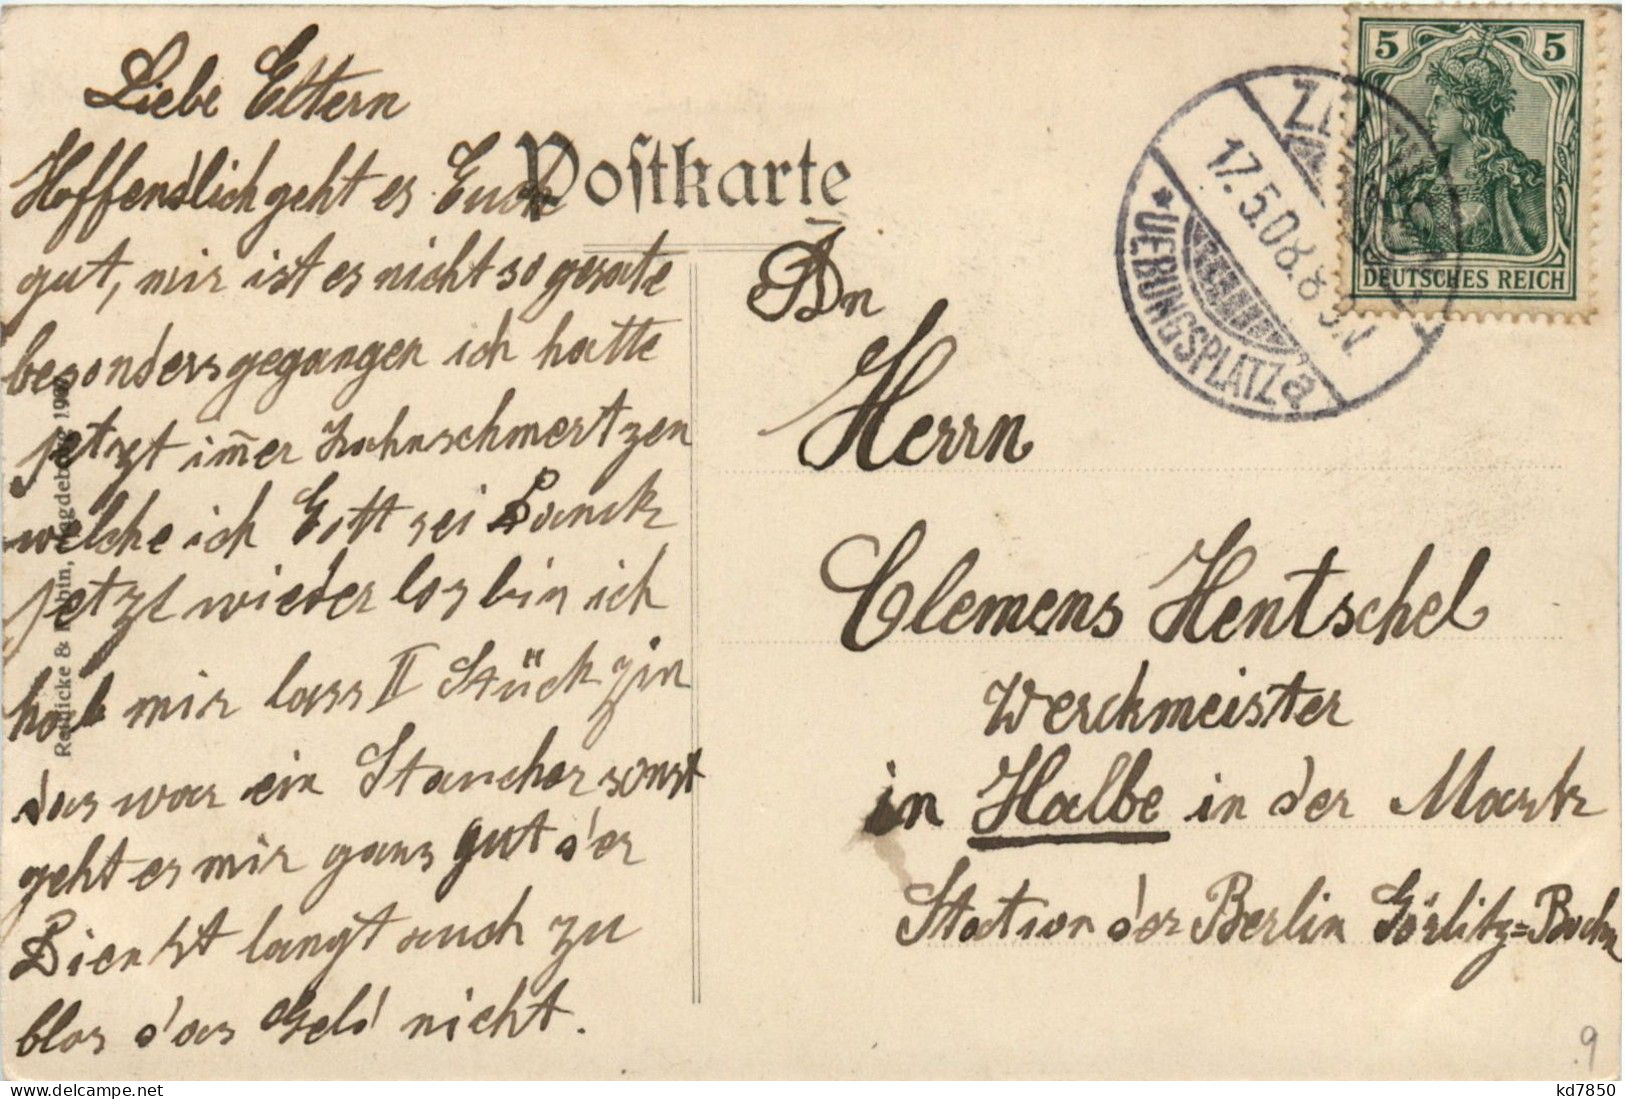 Liebe Eltern
Hoffendlich geht es Euch
gut, mir ist es nicht so gerate
besonders gegangen ich hatte
jetzt im̅er Zahnschmertzen
welche ich Gott sei Danck
jetzt wieder los bin ich
hab mir lass II Stück zin
das war ein Staucher sonst
geht es mir gans gut der
Dienst langt auch zu
blos das Geld nicht.
Postkarte
An
Herrn
Clemens Hentschel
Werckmeister
in Halbe in der Mark
Station der Berlin Görlitz=Bahn
5 5
DEUTSCHES REICH
17.5.08. 8-9 N.
* UEBUNGSPLATZ a
Reinicke & Rubin, Magdeburg
9
kd7850